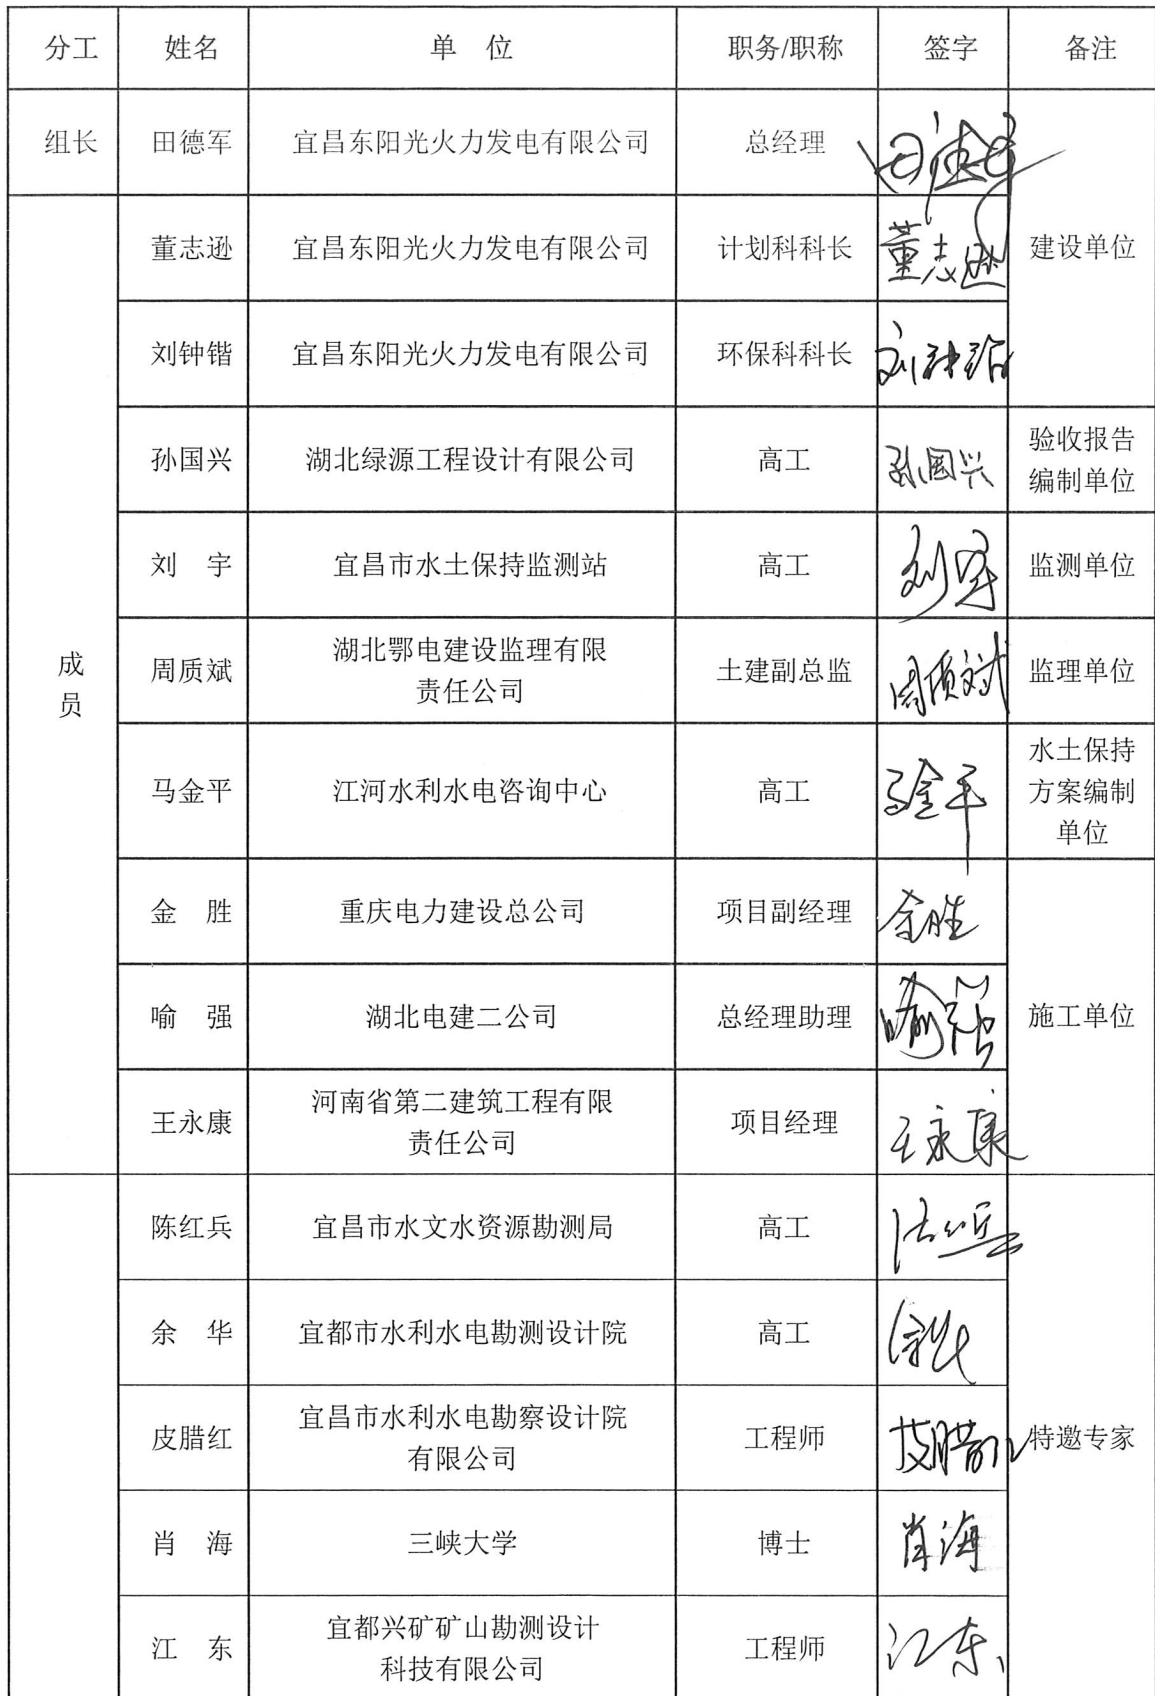 分工 姓名 单 位 职务/职称 签字 备注
组长 田德军 宜昌东阳光火力发电有限公司 总经理 田德军
董志逊 宜昌东阳光火力发电有限公司 计划科科长 董志逊 建设单位
刘钟锴 宜昌东阳光火力发电有限公司 环保科科长 刘钟锴
孙国兴 湖北绿源工程设计有限公司 高工 孙国兴 验收报告
编制单位
刘 宇 宜昌市水土保持监测站 高工 刘宇 监测单位
成
员
周质斌 湖北鄂电建设监理有限
责任公司 土建副总监 周质斌 监理单位
马金平 江河水利水电咨询中心 高工 马金平 水土保持
方案编制
单位
金 胜 重庆电力建设总公司 项目副经理 金胜
喻 强 湖北电建二公司 总经理助理 喻强 施工单位
王永康 河南省第二建筑工程有限
责任公司 项目经理 王永康
陈红兵 宜昌市水文水资源勘测局 高工 陈红兵
余 华 宜都市水利水电勘测设计院 高工 余华
皮腊红 宜昌市水利水电勘察设计院
有限公司 工程师 皮腊红 特邀专家
肖 海 三峡大学 博士 肖海
江 东 宜都兴矿矿山勘测设计
科技有限公司 工程师 江东